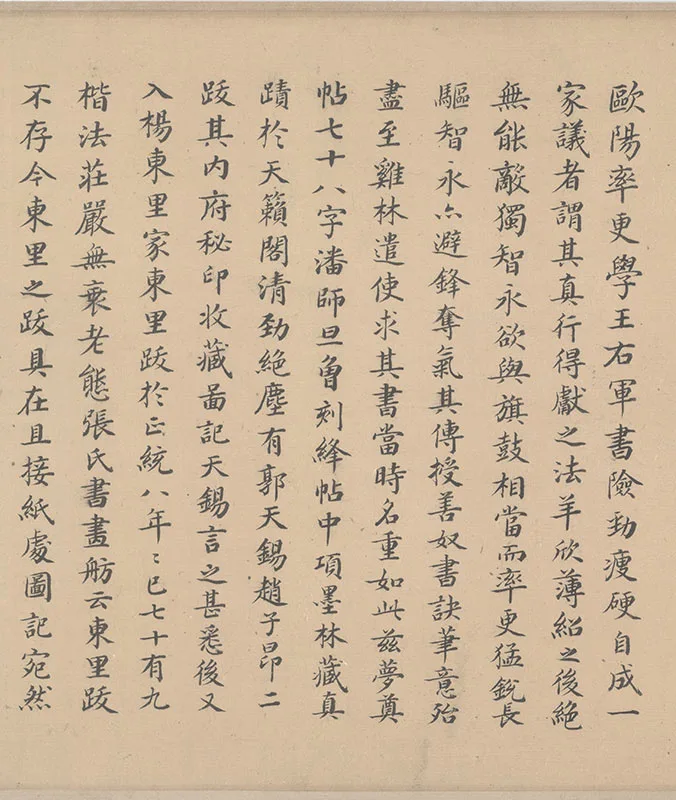 歐陽率更學王右軍書險勁瘦硬自成一
家議者謂其真行得獻之法羊欣薄紹之後絕
無能敵獨智永欲與旗鼓相當而率更猛銳長
驅智永亦避鋒奪氣其傳授善奴書訣筆意殆
盡至雞林遣使求其書當時名重如此茲夢奠
帖七十八字潘師旦曾刻絳帖中項墨林藏真
蹟於天籟閣清勁絕塵有郭天錫趙子昂二
跋其内府秘印收藏啚記天錫言之甚悉後又
入楊東里家東里跋於正統八年〻已七十有九
楷法莊嚴無衰老態張氏書畫舫云東里跋
不存今東里之跋具在且接紙處圖記宛然